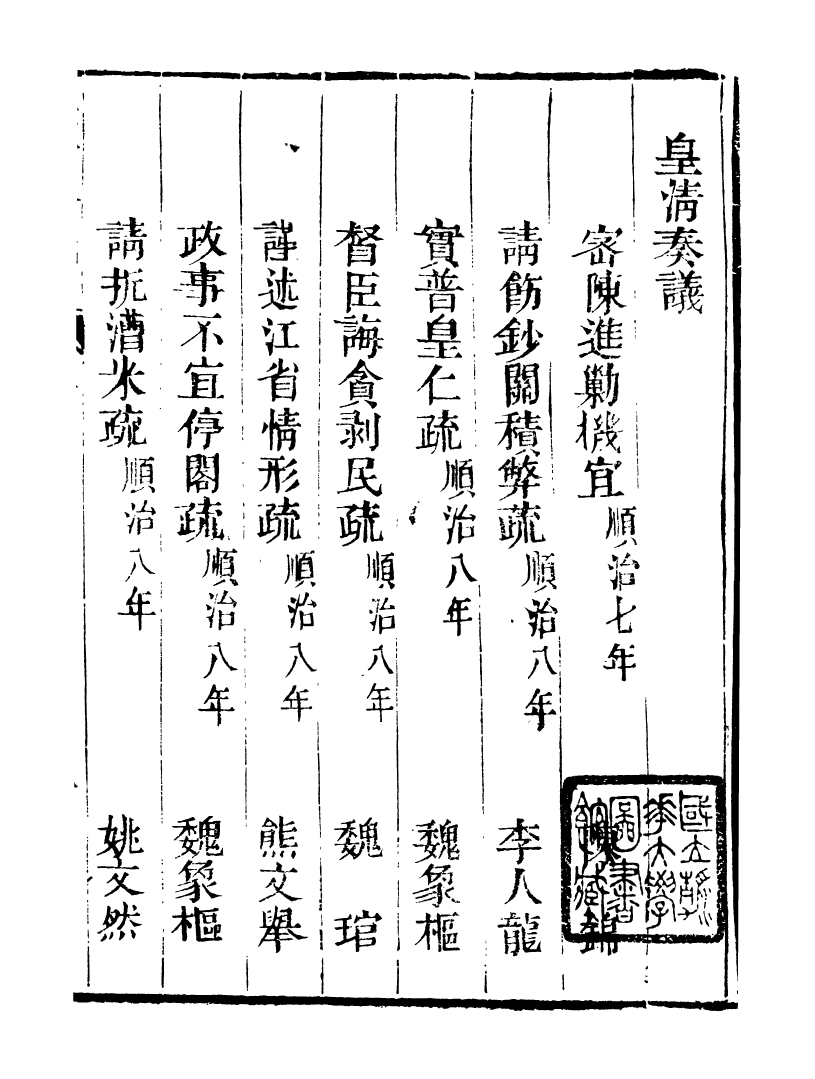 皇淸奏議
密陳進勦機宜 順治七年 陳 錦
請飭鈔關積弊疏 順治八年 李人龍
實普皇仁疏 順治八年 魏象樞
督臣誨貪剥民疏 順治八年 魏 琯
詳述江省情形疏 順治八年 熊文舉
政事不宜停閣疏 順治八年 魏象樞
請折漕米疏 順治八年 姚文然
國立
華大學
圖書
藏